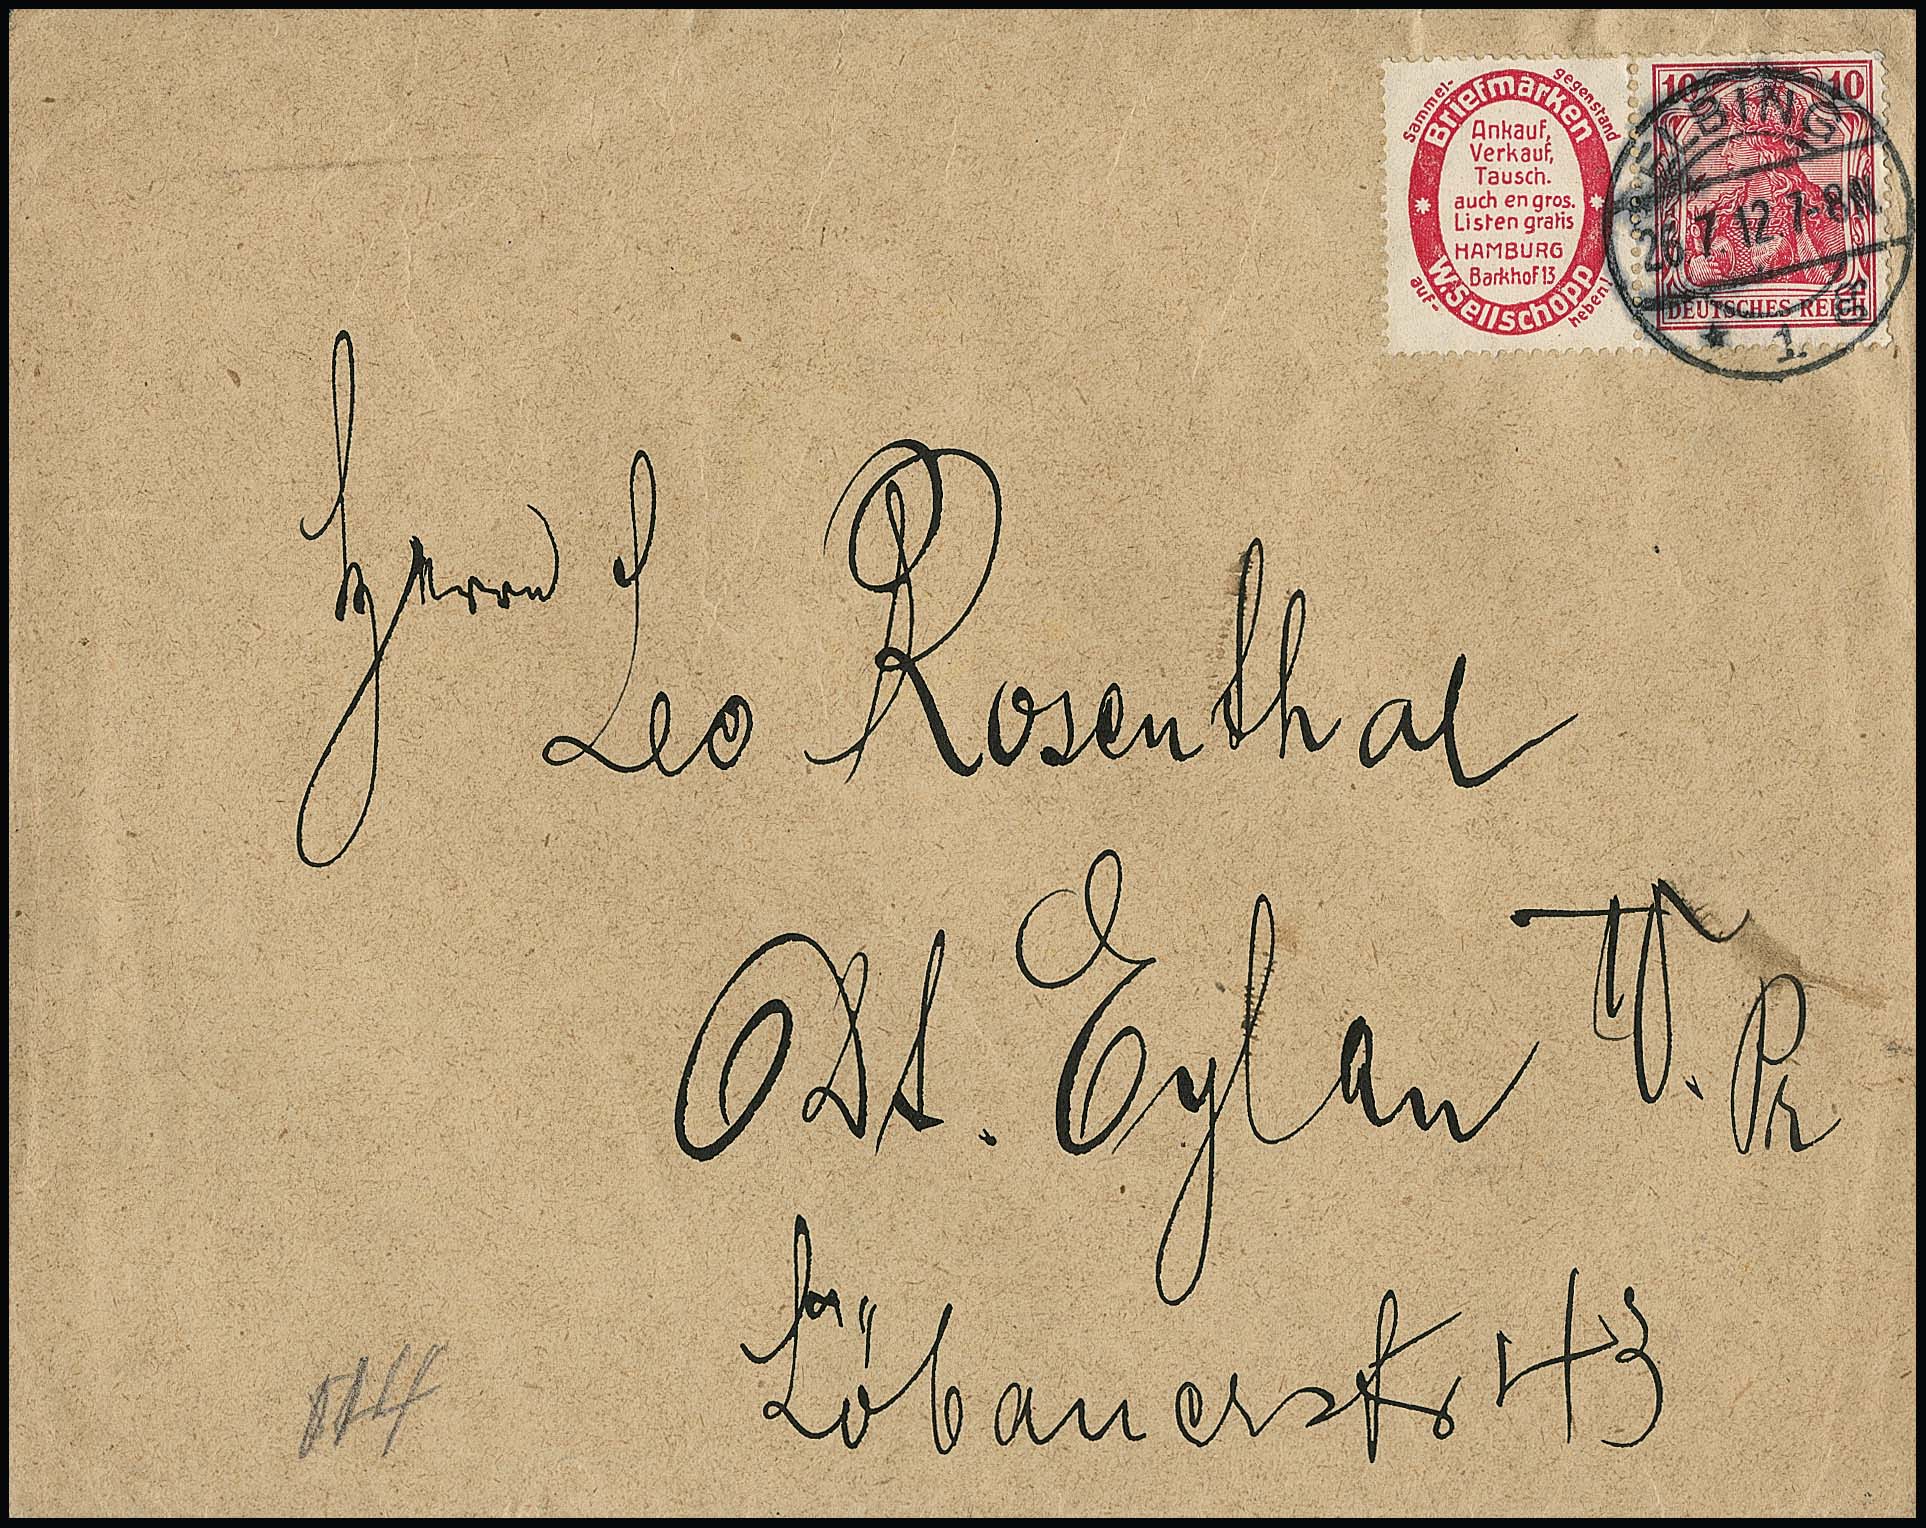 Sammel-
gegenstand
Briefmarken
Ankauf,
Verkauf,
Tausch.
auch en gros.
Listen gratis
HAMBURG
Barkhof 13
W.Sellschopp
auf-
heben!
10 10
DEUTSCHES REICH
ELBING
26.7.12.7-8N
* 1.
Herrn
Leo Rosenthal
Dt. Eylau W. Pr
Löbauerstr 43